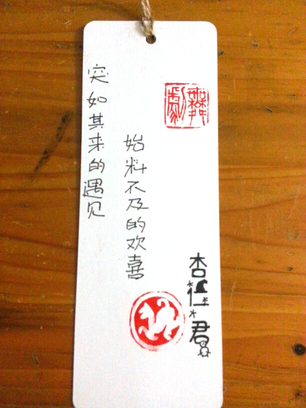 突如其来的遇见
始料不及的欢喜
舞劇
杏仁君